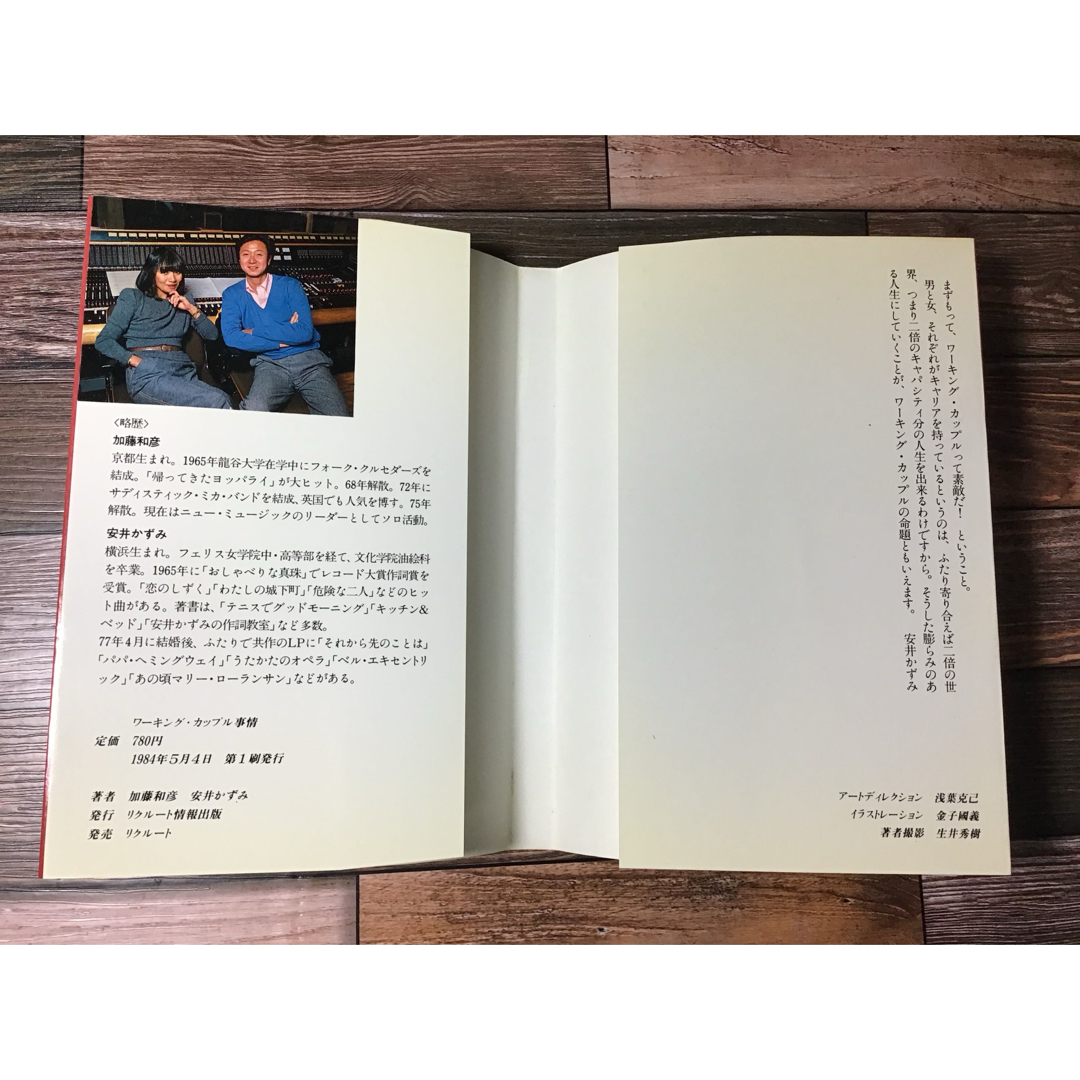 〈略歴〉
加藤和彦
京都生まれ。1965年龍谷大学在学中にフォーク・クルセダーズを
結成。「帰ってきたヨッパライ」が大ヒット。68年解散。72年に
サディスティック・ミカ・バンドを結成、英国でも人気を博す。75年
解散。現在はニュー・ミュージックのリーダーとしてソロ活動。
安井かずみ
横浜生まれ。フェリス女学院中・高等部を経て、文化学院油絵科
を卒業。1965年に「おしゃべりな真珠」でレコード大賞作詞賞を
受賞。「恋のしずく」「わたしの城下町」「危険な二人」などのヒッ
ト曲がある。著書は、「テニスでグッドモーニング」「キッチン&
ベッド」「安井かずみの作詞教室」など多数。
77年4月に結婚後、ふたりで共作のLPに「それから先のことは」
「パパ・ヘミングウェイ」「うたかたのオペラ」「ベル・エキセントリ
ック」「あの頃マリー・ローランサン」などがある。
ワーキング・カップル事情
定価 780円
1984年5月4日 第1刷発行
著者 加藤和彦 安井かずみ
発行 リクルート情報出版
発売 リクルート
まずもって、ワーキング・カップルって素敵だ! ということ。
男と女、それぞれがキャリアを持っているというのは、ふたり寄り合えば二倍の世
界、つまり二倍のキャパシティ分の人生を出来るわけですから。そうした膨らみのあ
る人生にしていくことが、ワーキング・カップルの命題ともいえます。 安井かずみ
アートディレクション 浅葉克己
イラストレーション 金子國義
著者撮影 生井秀樹